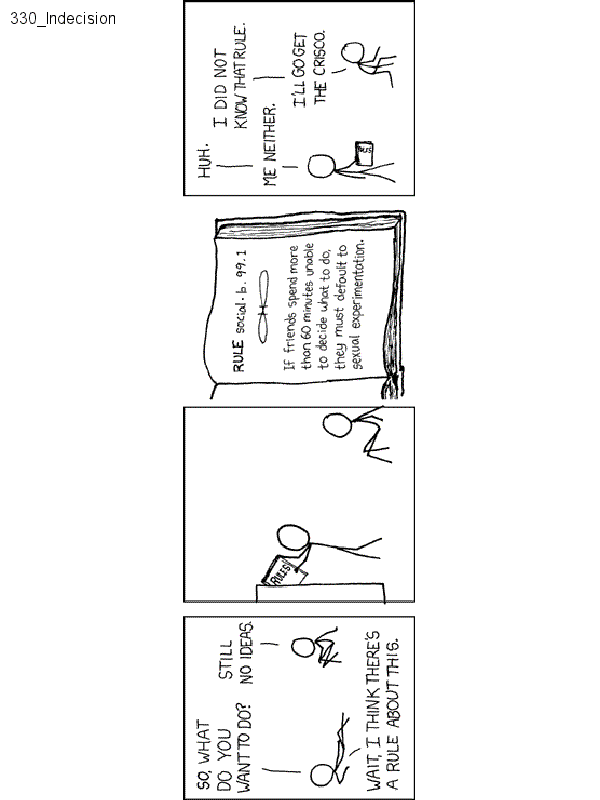 330_Indecision
SO, WHAT
DO YOU
WANT TO DO?
STILL
NO IDEAS.
WAIT, I THINK THERE'S
A RULE ABOUT THIS.
RULES
RULE social.b.99.1
If friends spend more
than 60 minutes unable
to decide what to do,
they must default to
sexual experimentation.
HUH.
I DID NOT
KNOW THAT RULE.
ME NEITHER.
I'LL GO GET
THE CRISCO.